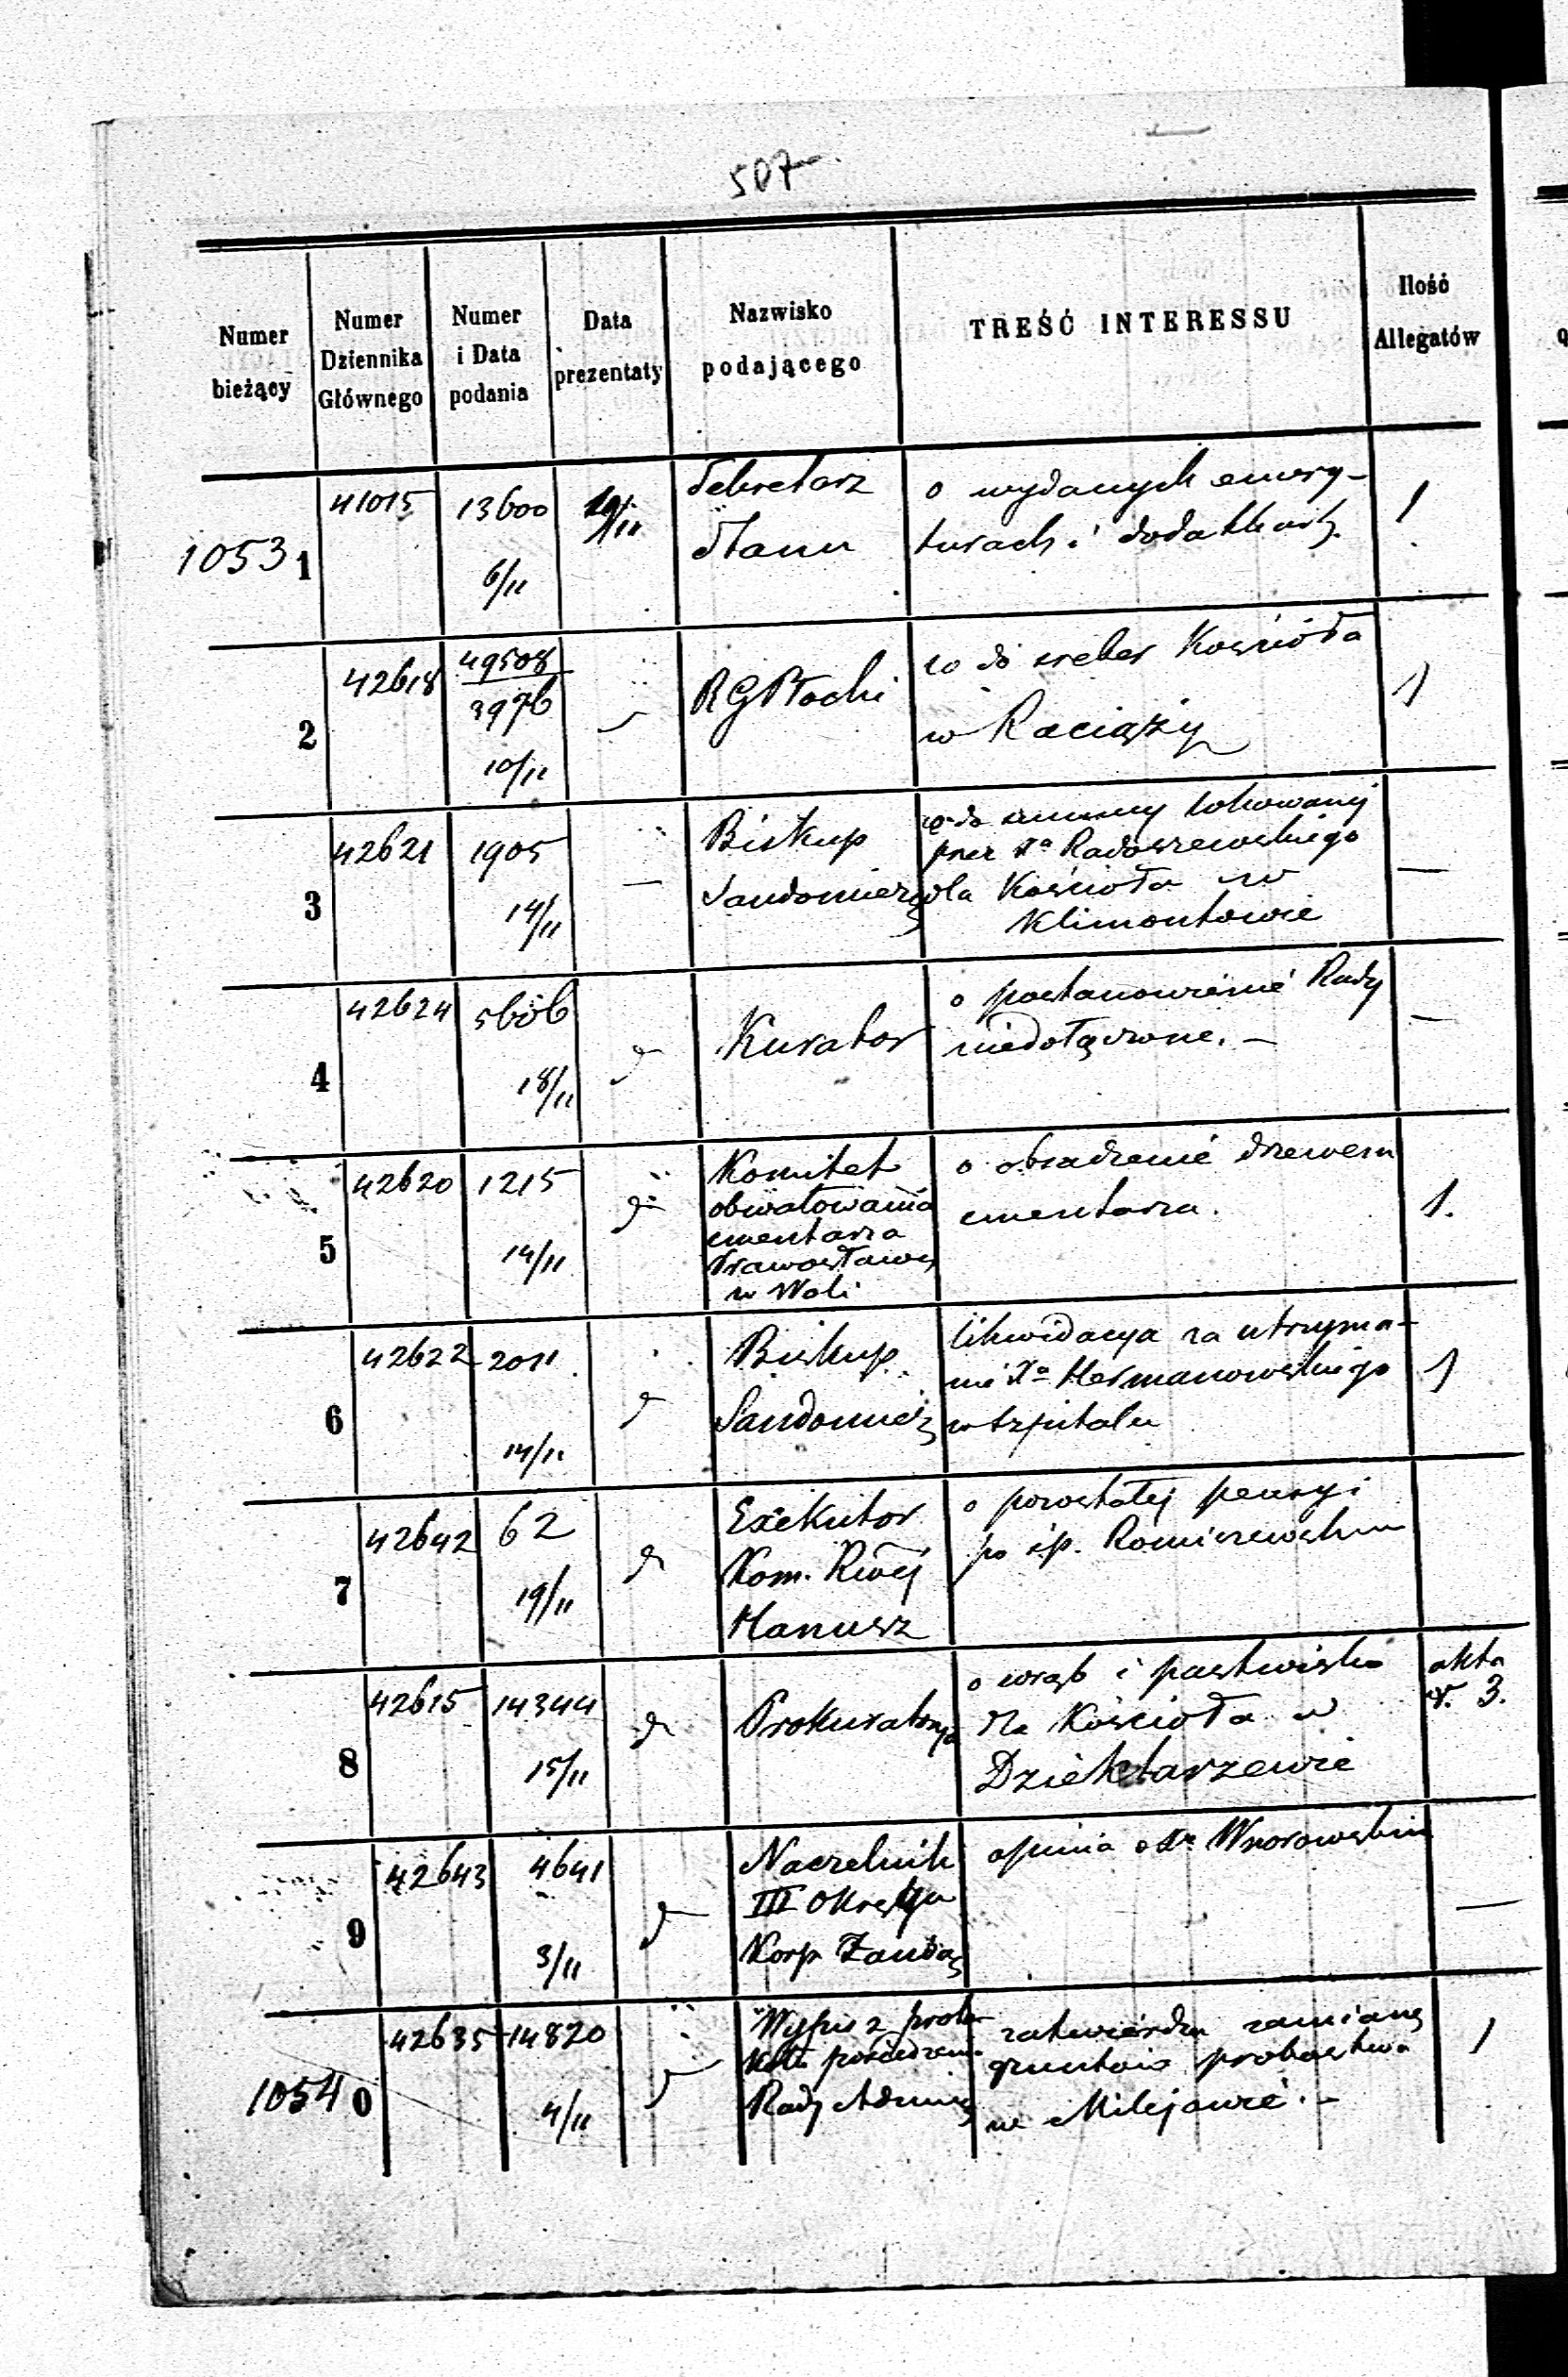 507
Numer bieżący
Numer Dziennika Głównego
Numer i Data podania
Data prezentaty
Nazwisko podającego
TREŚĆ INTERESSU
Ilość Allegatów
10531
41015
13600
6/11
Sekretarz
Stanu
o wydanych emery-
turach i dodatkach
1
2
42618
49508
3976
10/11
RG Płocki
co do sreber Kościoła
w Raciąży
1
3
42621
1905
14/11
Biskup
Sandomiers
co do summy lokowanej
przez Xa Radoszewskiego
dla Kościoła w
Klimontowie
—
4
42624
5606
18/11
Kurator
o postanowienie Rady
niedołączone. —
—
5
42620
1215
14/11
Komitet
obwałowania
cmentarza
Prawosławn
w Woli
o obsadzenie drzewem
cmentarza.
1.
6
42622
2011
14/11
Biskup
Sandomier
likwidacya za utrzyma-
nie Xa Hermanowskiego
w szpitalu
1
7
42642
62
19/11
Exekutor
Kom. Rwej
Hanusz
o pozostałej pensyi
po śp. Romiszewskim
8
42615
14344
15/11
Prokuratorya
o wrąb i pastwisko
dla Kościoła w
Dziektarzewie
akta
v. 3.
9
42643
4641
3/11
Naczelnik
III Okręgu
Korp Żanda
opinia o Xu Wnorowskim
—
10540
42635
14820
4/11
Wypis z proto-
kółu posiedzenia
Rady Admin
zatwierdza zamianę
gruntów probostwa
w Milejowie. —
1